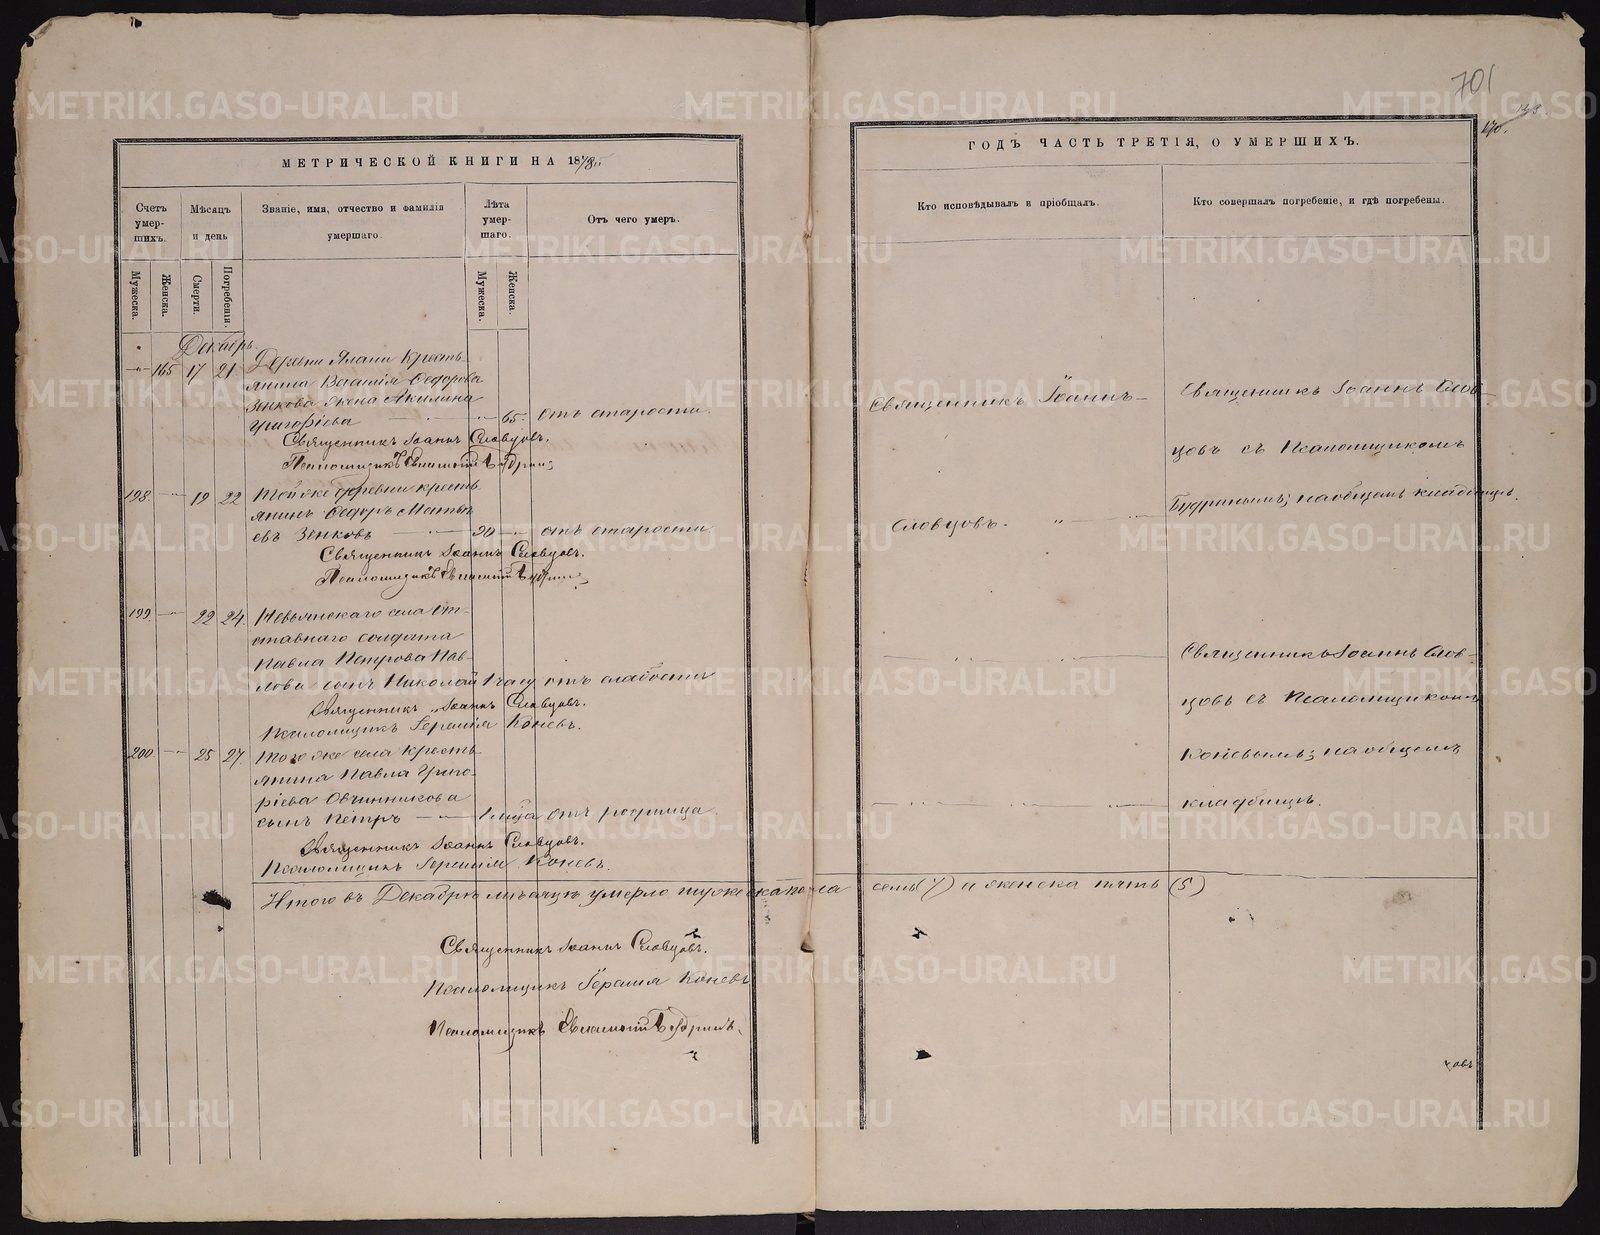 701
МЕТРИЧЕСКОЙ КНИГИ НА 18
ГОДЪ ЧАСТЬ ТРЕТІЯ, О УМЕРШИХЪ.
Счетъ умер-шихъ.
Мѣсяцъ и день
Званіе, имя, отчество и фамилія умершаго.
Лѣта умер-шаго.
Отъ чего умеръ.
Кто исповѣдывалъ и пріобщалъ.
Кто совершалъ погребеніе, и гдѣ погребены.
Мужеска.
Женска.
Смерти.
Погребенія.
Мужеска.
Женска.
Декабрь.
165 17 21 Деревни Ялани Кресть-
янина Василія Ѳедорова
Зенкова жена Акилина
Григоріева 65. отъ старости.
Священникъ Іоаннъ Словцовъ.
Псаломщикъ
Священникъ Іоаннъ
Словцовъ.
Священникъ Іоаннъ Слов-
цовъ съ Псаломщикомъ
Будринымъ; на общемъ кладбищѣ.
198 19 22 Той же деревни кресть-
янинъ Ѳедоръ Матѳѣ-
евъ Зенковъ 90 отъ старости
Священникъ Іоаннъ Словцовъ.
Псаломщикъ
199. 22 24. Невьянскаго села От-
ставнаго солдата
Павла Петрова Пав-
лова сынъ Николай 1 часу отъ слабости
Священникъ Іоаннъ Словцовъ.
Псаломщикъ Герасимъ Коневъ.
Священникъ Іоаннъ Слов-
цовъ съ Псаломщикомъ
Коневымъ; на общемъ
кладбищѣ.
200 25 27. Того же села Кресть-
янина Павла Григо-
ріева Овчинникова
сынъ Петръ отъ родимца.
Священникъ Іоаннъ Словцовъ.
Псаломщикъ Герасимъ Коневъ.
Итого въ Декабрѣ мѣсяцѣ умерло мужеска пола семь (7) и женска пять (5)
Священникъ Іоаннъ Словцовъ.
Псаломщикъ Герасимъ Коневъ
Псаломщикъ
METRIKI.GASO-URAL.RU